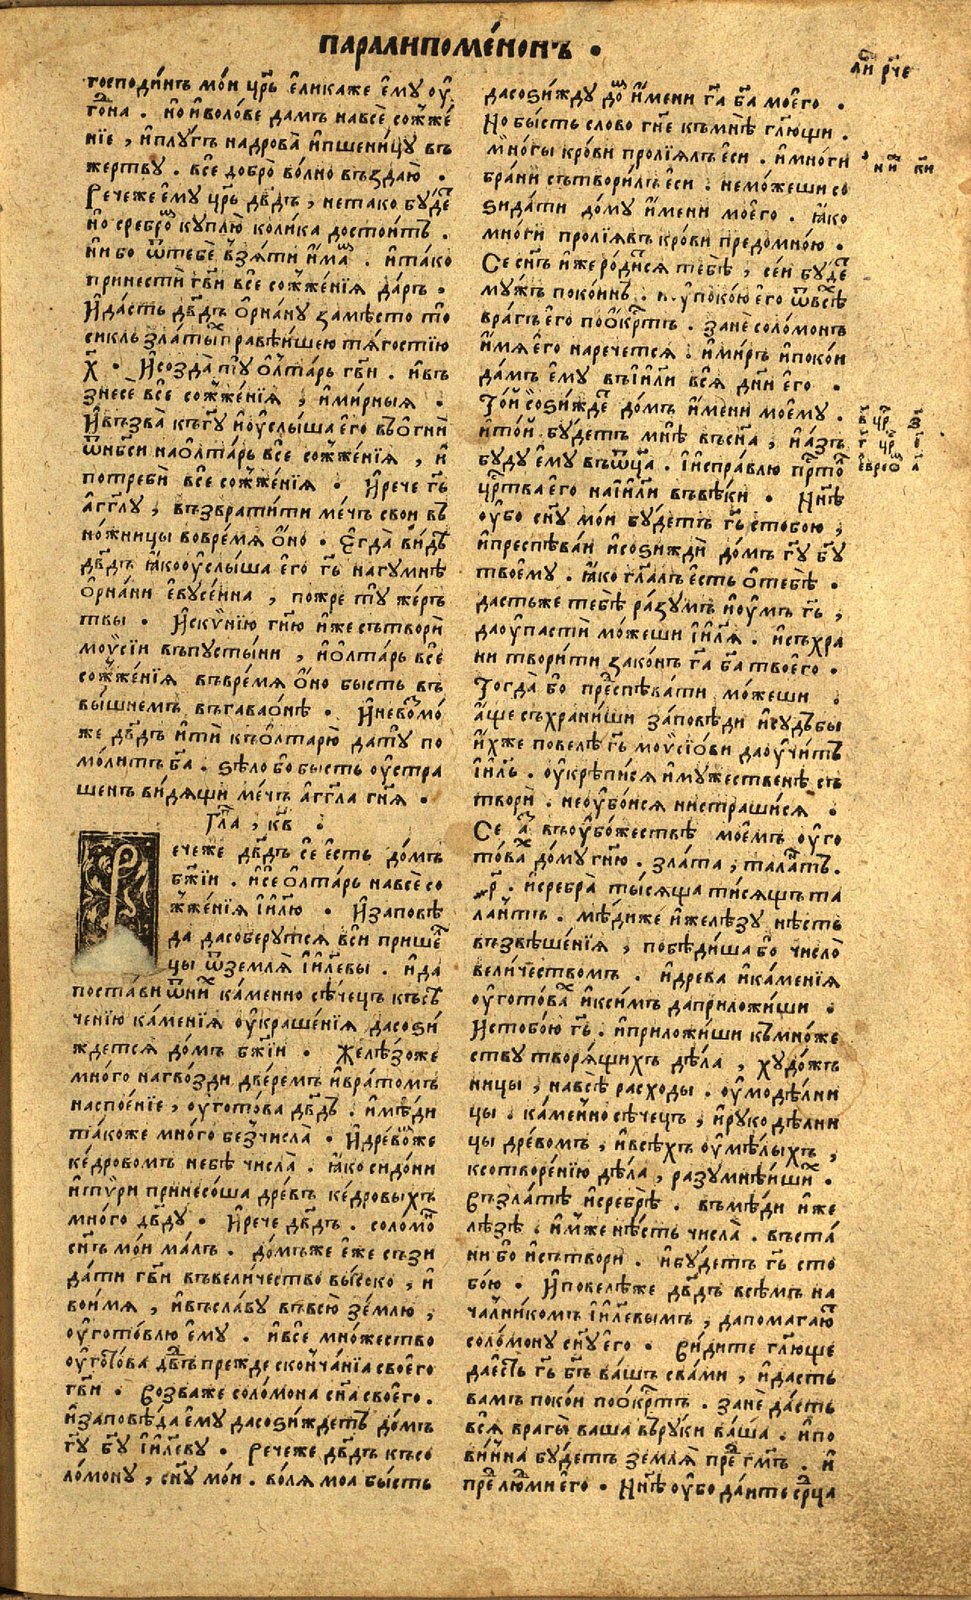 ПАРАЛИПОМЕ́НОНЪ .
господи́нъ мо́и цр҃ь є҆ликаже є҆му оу҆
го́на . но и҆воло́ве дамъ навсѐ сожже́
нїе , и҆плу́гъ надрова̀ и҆пшени́цу въ
жертву . всѐ добро̀ во́лно въздаю̀ .
Рече́же є҆му цр҃ь дв҃дъ , нетако бу́де
но сребро̀ куплю̀ коли́ка достои́тъ .
ни бо ѿтебѐ взя́ти и҆ма . и҆та́ко
принестѝ гв҃и всѐ сожже́нїя да́ръ .
И҆да́сть дв҃дъ о҆рна́ну замѣ́сто то
сикль зла́тыⷯ правѣ́ишею тя́гостїю
х҃ . И҆созда̀ ту̀ о҆лта́рь гв҃и . и҆въ
знесѐ всѐ сожже́нїя , и҆ми́рныя .
И҆възва̀ къгу҃ и҆оу҆слы́ша є҆го въо҆гнѝ
ѿнб҃си нао҆лта́рь всѐ сожже́нїя , и҆
потребѝ всѐ сожже́нїя . И҆рече гь҃
а҆гг҃лу , възврати́ти ме́чъ сво́и въ
но́жницы вовре́мя о҆но . Є҆гда̀ ви́дѣ
дв҃дъ ꙗ҆кооу҆слы́ша є҆го гь҃ нагумнѣ̀
о҆рна́ни є҆вусе́ина , пожре ту̀ же́ръ
твы . И҆ски́нїю гн҃ю и҆же сътворѝ
моѵ҆сїи въпусты́ни , и҆о҆лта́рь всѐ
сожже́нїя въвре́мя о҆но бысть въ
вы́шнемъ въгаваѻ́нѣ . И҆невъꙁмо́
же дв҃дъ и҆тѝ къо҆лтарю̀ дату̀ по
мо́литъ ба҃ . ѕѣло̀ бо бысть оу҆стра
шенъ ви́дящи ме́чь а҆гг҃ла гн҃я .
Гла , кв҃ .
ечеже дв҃дъ сѐ є҆сть до́мъ
бж҃їи . и҆сѐ о҆лта́рь навсѐ со
жже́нїя і҆и҃лю . И҆заповѣ
да дасоберутся всѝ прише
цы ѿземля̀ і҆и҃левы . и҆да
поста́ви ѿниⷯ ка́менно сѣ́чецъ късѣ
че́нїю ка́менїя оу҆краше́нїя дасоѕи́
ждется до́мъ бж҃їи . Желѣ́зоже
мно́го нагво́зди две́ремъ и҆вра́томъ
наспое́нїе , оу҆гото́ва дв҃дъ . и҆мѣ́ди
та́коже мно́го беꙁчисла̀ . И҆дре́воже
ке́дровомъ небѣ̀ числа̀ . ꙗ҆ко сидо́ни
и҆ти́ри принесо́ша дре́въ ке́дровыхъ
мно́го дв҃ду . И҆рече дв҃дъ . соло́мо
сн҃ъ мо́и ма́лъ . до́мъже є҆же съзи
да́ти гв҃и въвели́чество высо́ко , и҆
воимя , и҆въсла́ву въвсю̀ зе́млю ,
оу҆гото́влю є҆му . и҆всѐ мно́жество
оу҆гото́ва дв҃дъ прежде сконча́нїа своє́го
гв҃и . Созваже соло́мона сн҃а своє́го .
и҆заповѣ́да є҆му дасоѕи́ждетъ до́мъ
гу҃ бг҃у і҆и҃леву . Рече́же дв҃дъ късо
ло́мону , сн҃у мо́и . во́ля моа бы́сть
дасоѕи́жду до и҆мени га҃ ба҃ моє́го .
Но бы́сть сло́во гн҃е къмнѣ̀ гл҃ющи .
мно́гы кро́ви пролїя́лъ є҆си . и҆мно́ги
бра́ни сътвори́лъ є҆си . немо́жеши со
ѕида́ти до́му и҆мени моє́го . ꙗ҆ко
мно́ги пролїя́въ кро́ви предомно́ю .
Се сн҃ъ и҆же роди́ся тебѣ̀ , се́и бу́де
му́жъ поко́инъ . и҆ упоко́ю є҆го ѿвсѣ
вра́гъ є҆го поо́крⷭтъ . занѐ соло́монъ
и҆мя є҆го наречется . и҆ми́ръ и҆поко́и
да́мъ є҆му въі҆и҃ли вся̀ дн҃и є҆го .
То́и соѕи́жде до́мъ и҆мени моє́му .
и҆то́и бу́детъ мнѣ̀ въсн҃а , и҆а҆зъ
бу́ду є҆му въѿц҃а . І҆испра́влю прⷭто
црⷭтва є҆го наі҆и҃ли въвѣ́ки . Нн҃ѣ
оу҆бо сн҃у мо́и бу́детъ гь҃ стобо́ю ,
и҆преспѣва́и и҆соѕиждѝ до́мъ гу҃ бу҃
твоє́му . ꙗ҆ко гл҃алъ є҆сть о҆тебѣ̀ .
дастьже тебѣ̀ ра́зумъ и҆оу҆мъ гь҃ ,
даоу҆пастѝ мо́жеши і҆и҃ля . и҆съхра
ни твори́ти зако́нъ га҃ ба҃ твоє́го .
Тогда̀ бо преспѣва́ти мо́жеши .
а҆ще съхрани́ши за́повѣди и҆судъбы
и҆хже повелѣ̀ гь҃ моѵ҆сїо́ви даоу҆чи́тъ
і҆и҃ль . оу҆крѣпи́ся и҆му́жественѣ съ
творѝ . неоу҆бо́ися нистраши́ся .
Се а҆ въоу҆бо́жествѣ моє́мъ оу҆го
то́ваⷯ до́му гн҃ю . зла́та , талантъ .
р҃ . и҆сребра̀ ты́сяща ти́сящъ та
ла́нтъ . мѣ́диже и҆желѣ́зу нѣ́сть
възвѣше́нїя , побѣди́ша бо число̀
вели́чествомъ . и҆древа и҆ка́менїя
оу҆гото́ваⷯ и҆ксимъ даприложи́ши .
И҆стобо́ю гь҃ . и҆приложи́ши къмно́же
ству творя́щихъ дѣ́ла , худо́жъ
ницы , навсѣ̀ расхо́ды . оу҆модѣ́лни
цы . ка́менно сѣ́чецъ , и҆руко дѣ́лни
цы дре́вомъ , и҆всѣ́хъ оу҆мѣ́лыхъ ,
ксотворе́нїю дѣ́ла , разумнѣ́ишиⷯ .
Съзла́тѣ и҆сребрѣ̀ . въмѣ́ди и҆же
лѣ́зѣ . и҆мже нѣ́сть числа̀ . въста́
ни бо и҆сътворѝ . и҆бу́детъ гь҃ сто
бо́ю . И҆повелѣже дв҃дъ всѣ́мъ на
ча́лникомъ і҆и҃левымъ , дапомагаю
соло́мону сн҃у є҆го . Ви́дите гл҃юще
даесть гь҃ бг҃ъ вашъ сва́ми , и҆дасть
вамъ поко́и поо́крⷭтъ . занѐ да́сть
вся̀ врагы̀ ваша въруки ва́ша . и҆по
ви́нна бу́детъ земля̀ пре гм҃ъ . и҆
пре людми є҆го . Нн҃ѣ оу҆бо да́ите срⷣца